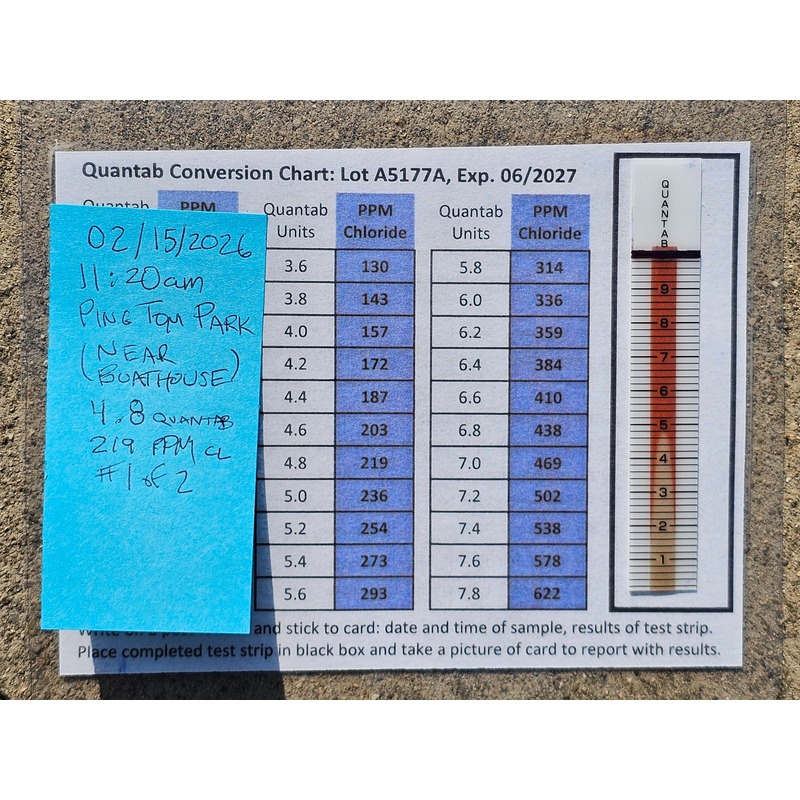 Quantab Conversion Chart: Lot A5177A, Exp. 06/2027
Quantab PPM
02/15/2026
11:20am
PING TOM PARK
(NEAR
BOATHOUSE)
4.8 QUANTAB
219 PPM CL
#1 of 2
Quantab Units PPM Chloride
3.6 130
3.8 143
4.0 157
4.2 172
4.4 187
4.6 203
4.8 219
5.0 236
5.2 254
5.4 273
5.6 293
Quantab Units PPM Chloride
5.8 314
6.0 336
6.2 359
6.4 384
6.6 410
6.8 438
7.0 469
7.2 502
7.4 538
7.6 578
7.8 622
QUANTAB
9
8
7
6
5
4
3
2
1
Write on a and stick to card: date and time of sample, results of test strip.
Place completed test strip in black box and take a picture of card to report with results.